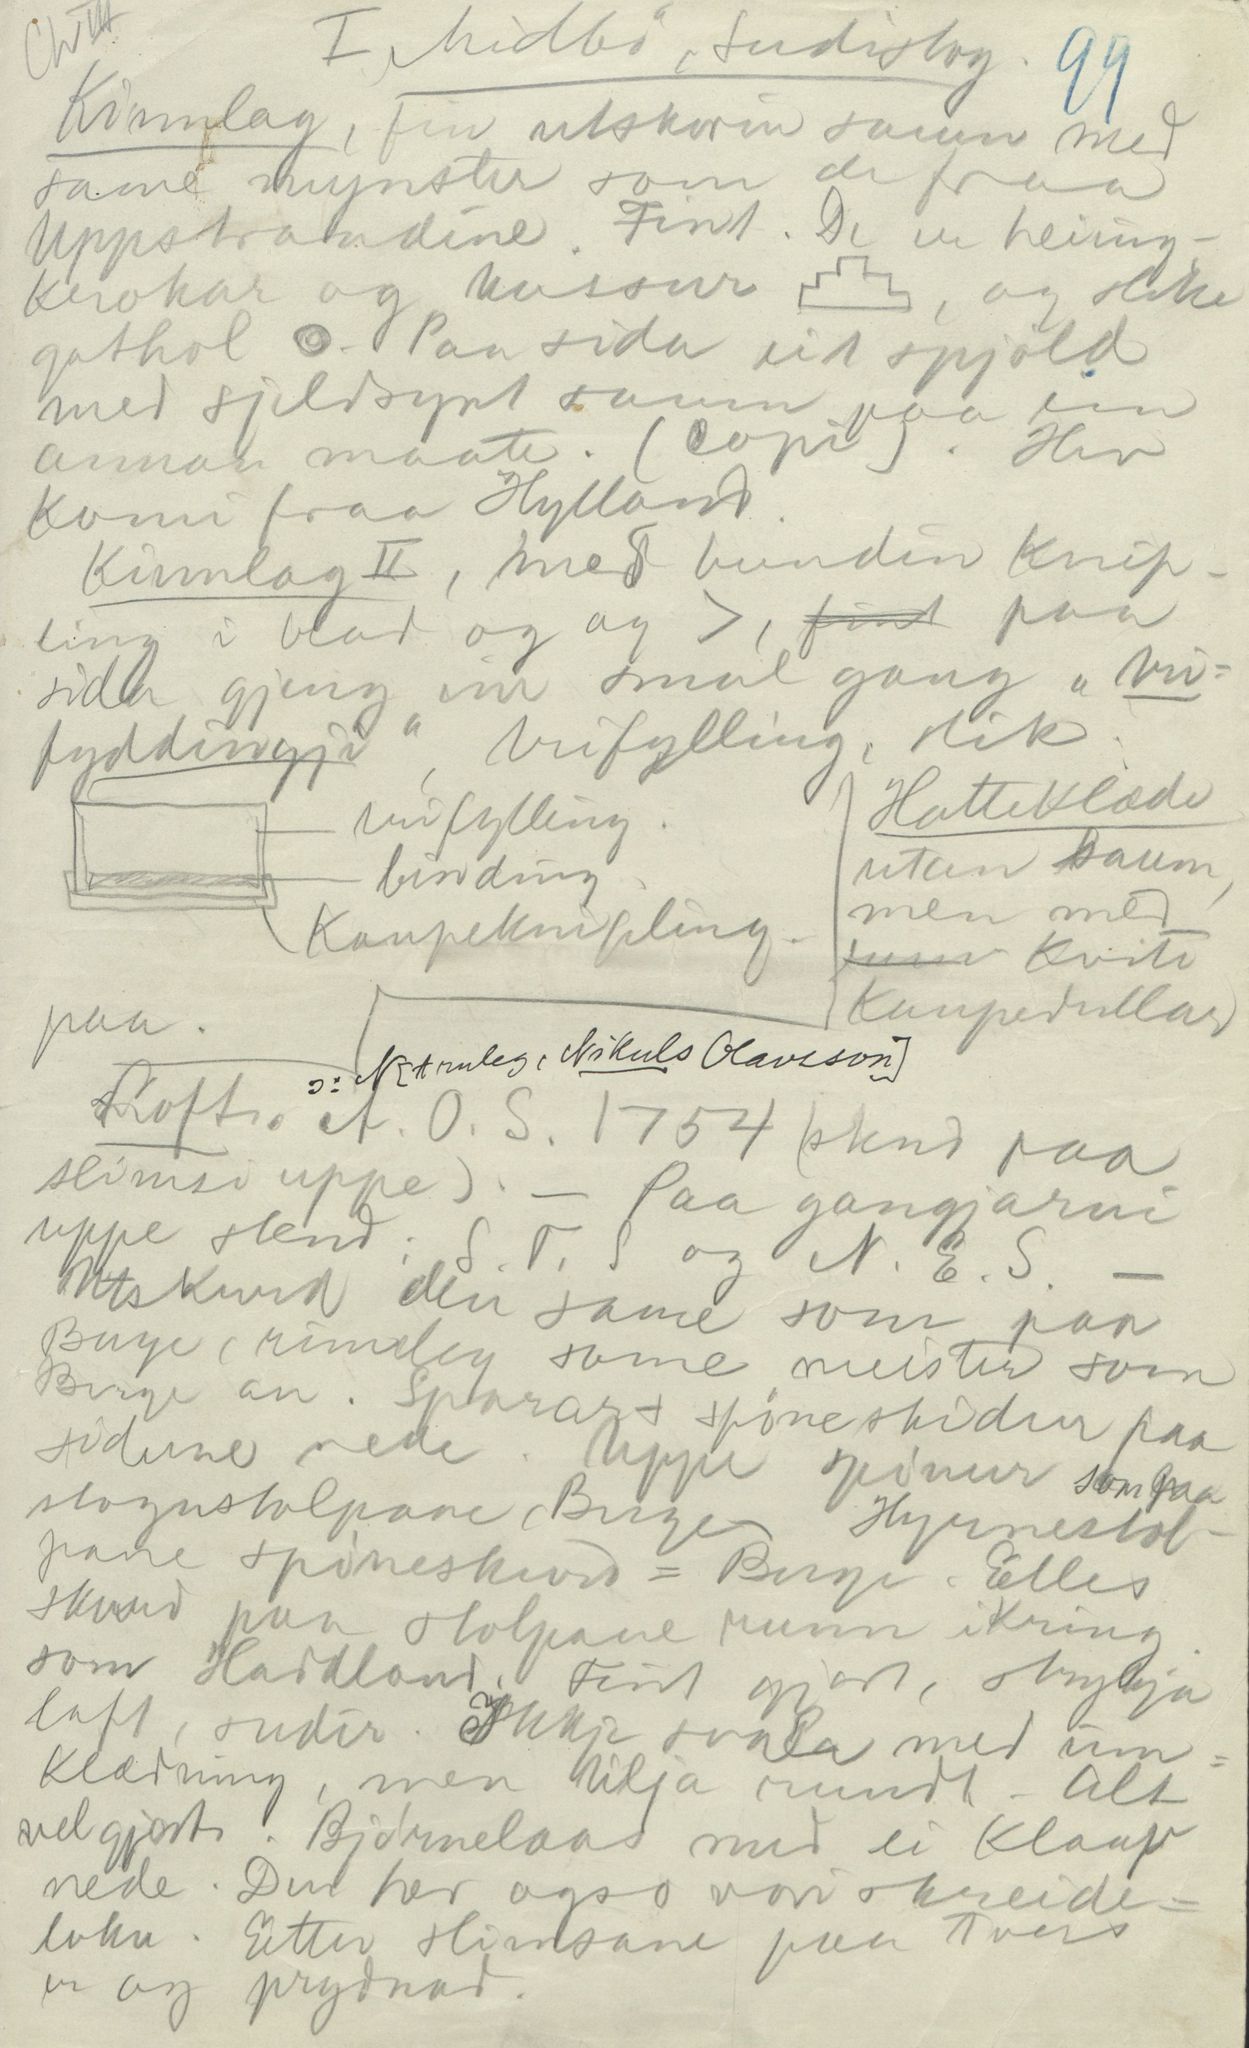 I Midbö, Sudistog. 99
Kinnlag, fin utskorin saum med
same mynster som de fraa
Uppstrandine. Fint. De er hering-
krokar og kussur, og slike
gathol. Paa sida eit spjöld
med sjeldsynt saum paa ein
annan maate. (Copi). Her
komi fraa Hylland.
Kinnlag II, med bundin knip-
ling i blad og og >, fint paa
sida gjeng ein smal gang "vri-
fyddingji", vrifylling, slik.
vrifylling.
binding.
Kaupeknipling.
paa.
Hatteklæde
utan saum,
men med
kvite
kaupedullar
ɔ: N[emleg, Nikuls Olavsson]
Loft. N. O. S. 1754 (skrid paa
slimsi uppe). — Paa gangjarni
uppe stend: S. T. S og N. E. S. —
Utskurd den same som paa
Berge, rimeleg same meister som
Berge au. Sparar + spöneskidur paa
sidune nede. Uppe spönur som paa
stogustolpane, Berge. Hyrnestol-
pane spöneskurd = Berge. Elles
skurd paa stolpane runn ikring
som Haddland. Fint gjort, strykja
laft, sudir. Ikkje svala med um-
klædning, men tilja rundt. Alt
velgjort. Björnelaas med ei klaup
nede. Der her ogso vori skreide-
loku. Etter slimsane paa tvers
er og prydnad.